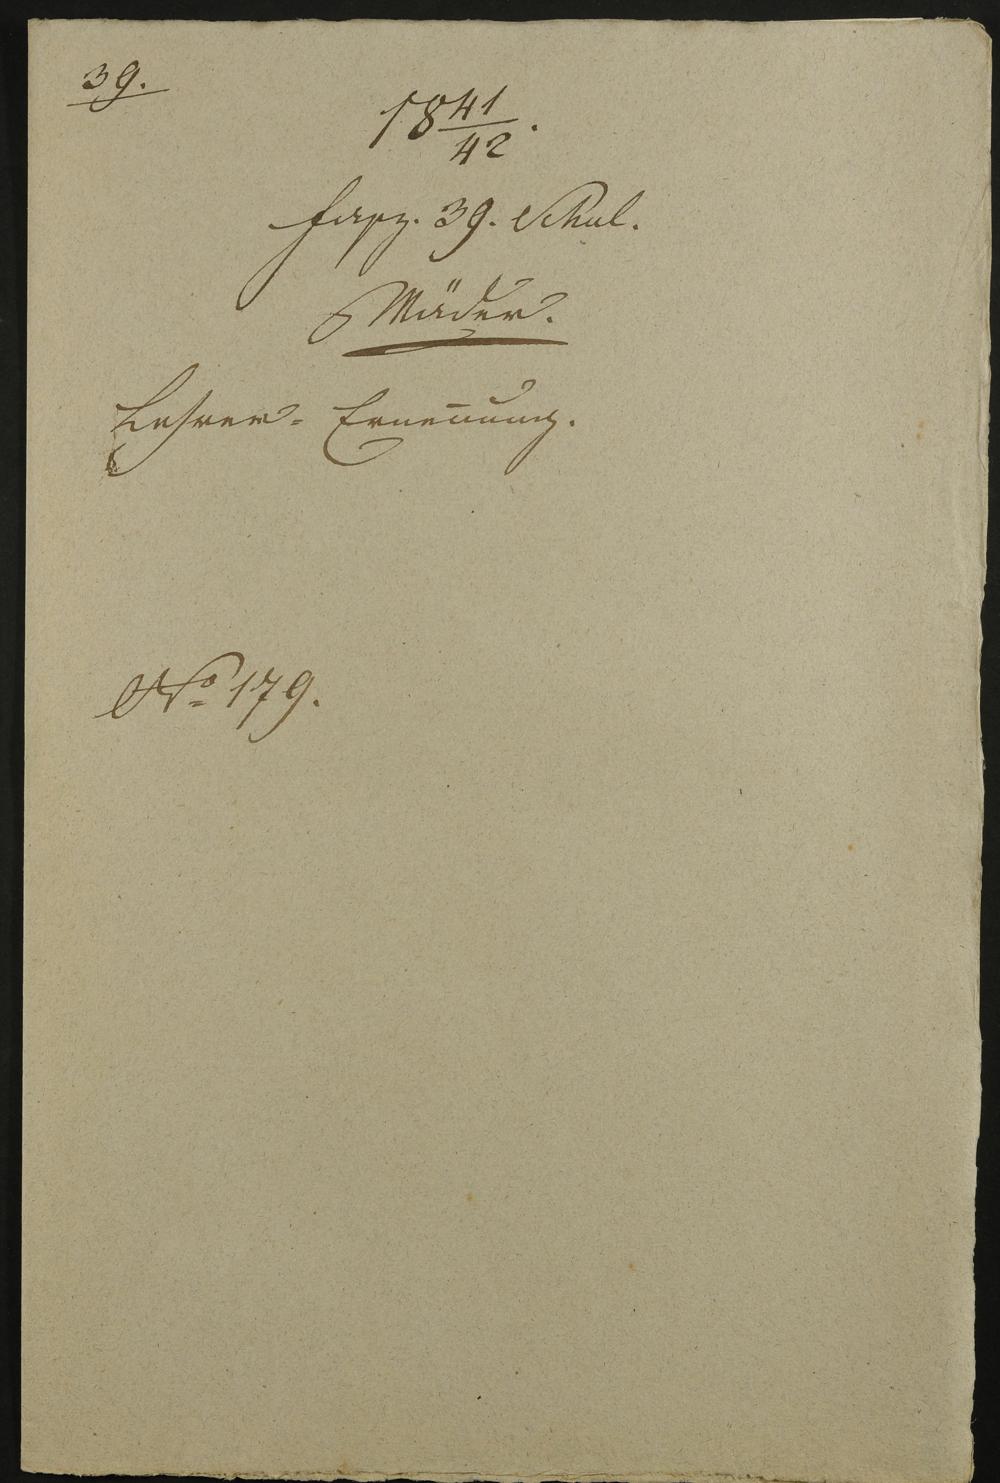 39.
18 41/42.
Fasz. 39. Schul.
Mäder.
Lehrer- Ernennung.
No 179.